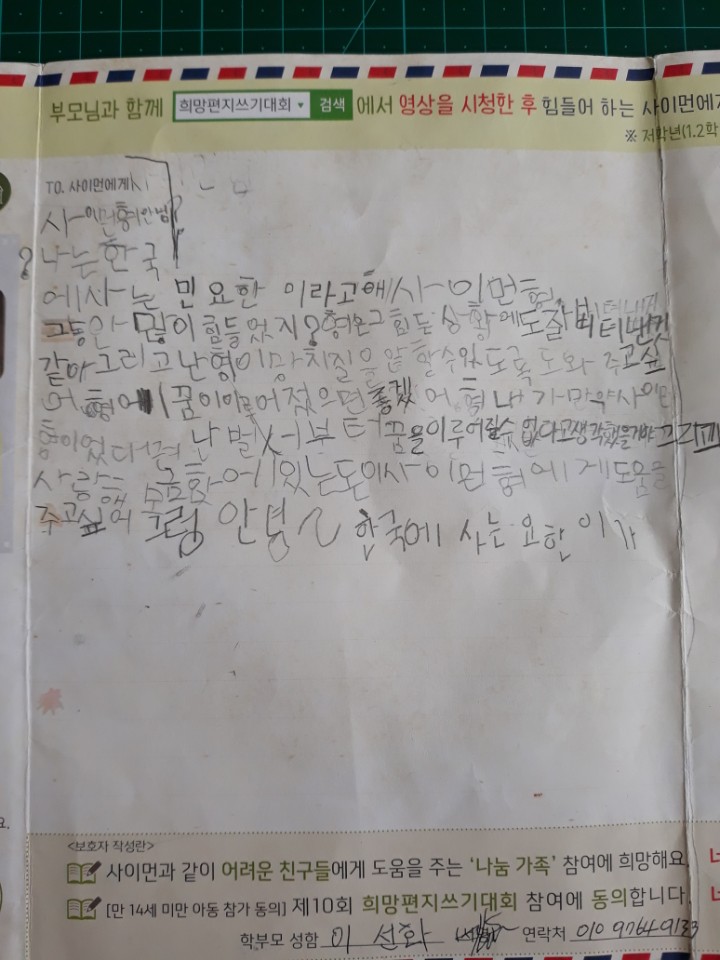 부모님과 함께 희망편지쓰기대회 검색 에서 영상을 시청한 후 힘들어 하는 사이먼에게
※ 저학년(1.2학
TO. 사이먼에게
사이먼형안녕?
나는한국
에사는 민요한 이라고해 사이먼형
그동안 많이힘들었지? 형은그힘든상황에도잘버티낸것
같아그리고난형이망치질을안할수있도록도와주고싶
어 형에 꿈이이루어졌으면좋겠어 형 내가만약사이먼
형이었다면 난벌써부터꿈을이루어질수없다고생각했을거야
사랑 있는돈이사이먼형에게도움을
주고싶어 그럼안녕~ 한국에 사는 요한이가
<보호자 작성란>
사이먼과 같이 어려운 친구들에게 도움을 주는 '나눔 가족' 참여에 희망해요.
[만 14세 미만 아동 참가 동의] 제10회 희망편지쓰기대회 참여에 동의합니다.
학부모 성함 이 선화 연락처 010 9764 9133